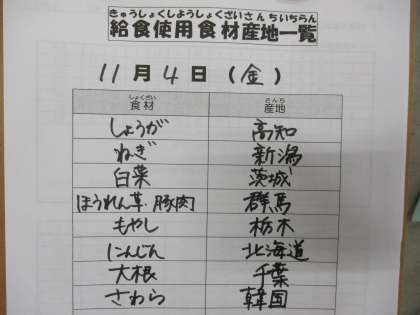 きゅうしょくしようしょくざいさんちいちらん
給食使用食材産地一覧
11月4日(金)
しょくざい さんち
食材 産地
しょうが 高知
ねぎ 新潟
白菜 茨城
ほうれん草・豚肉 群馬
もやし 栃木
にんじん 北海道
大根 千葉
さわら 韓国